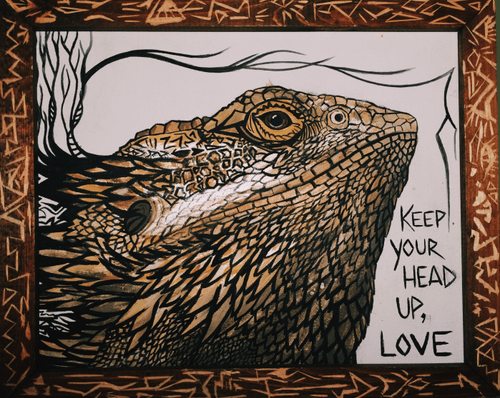 KEEP
YOUR
HEAD
UP,
LOVE